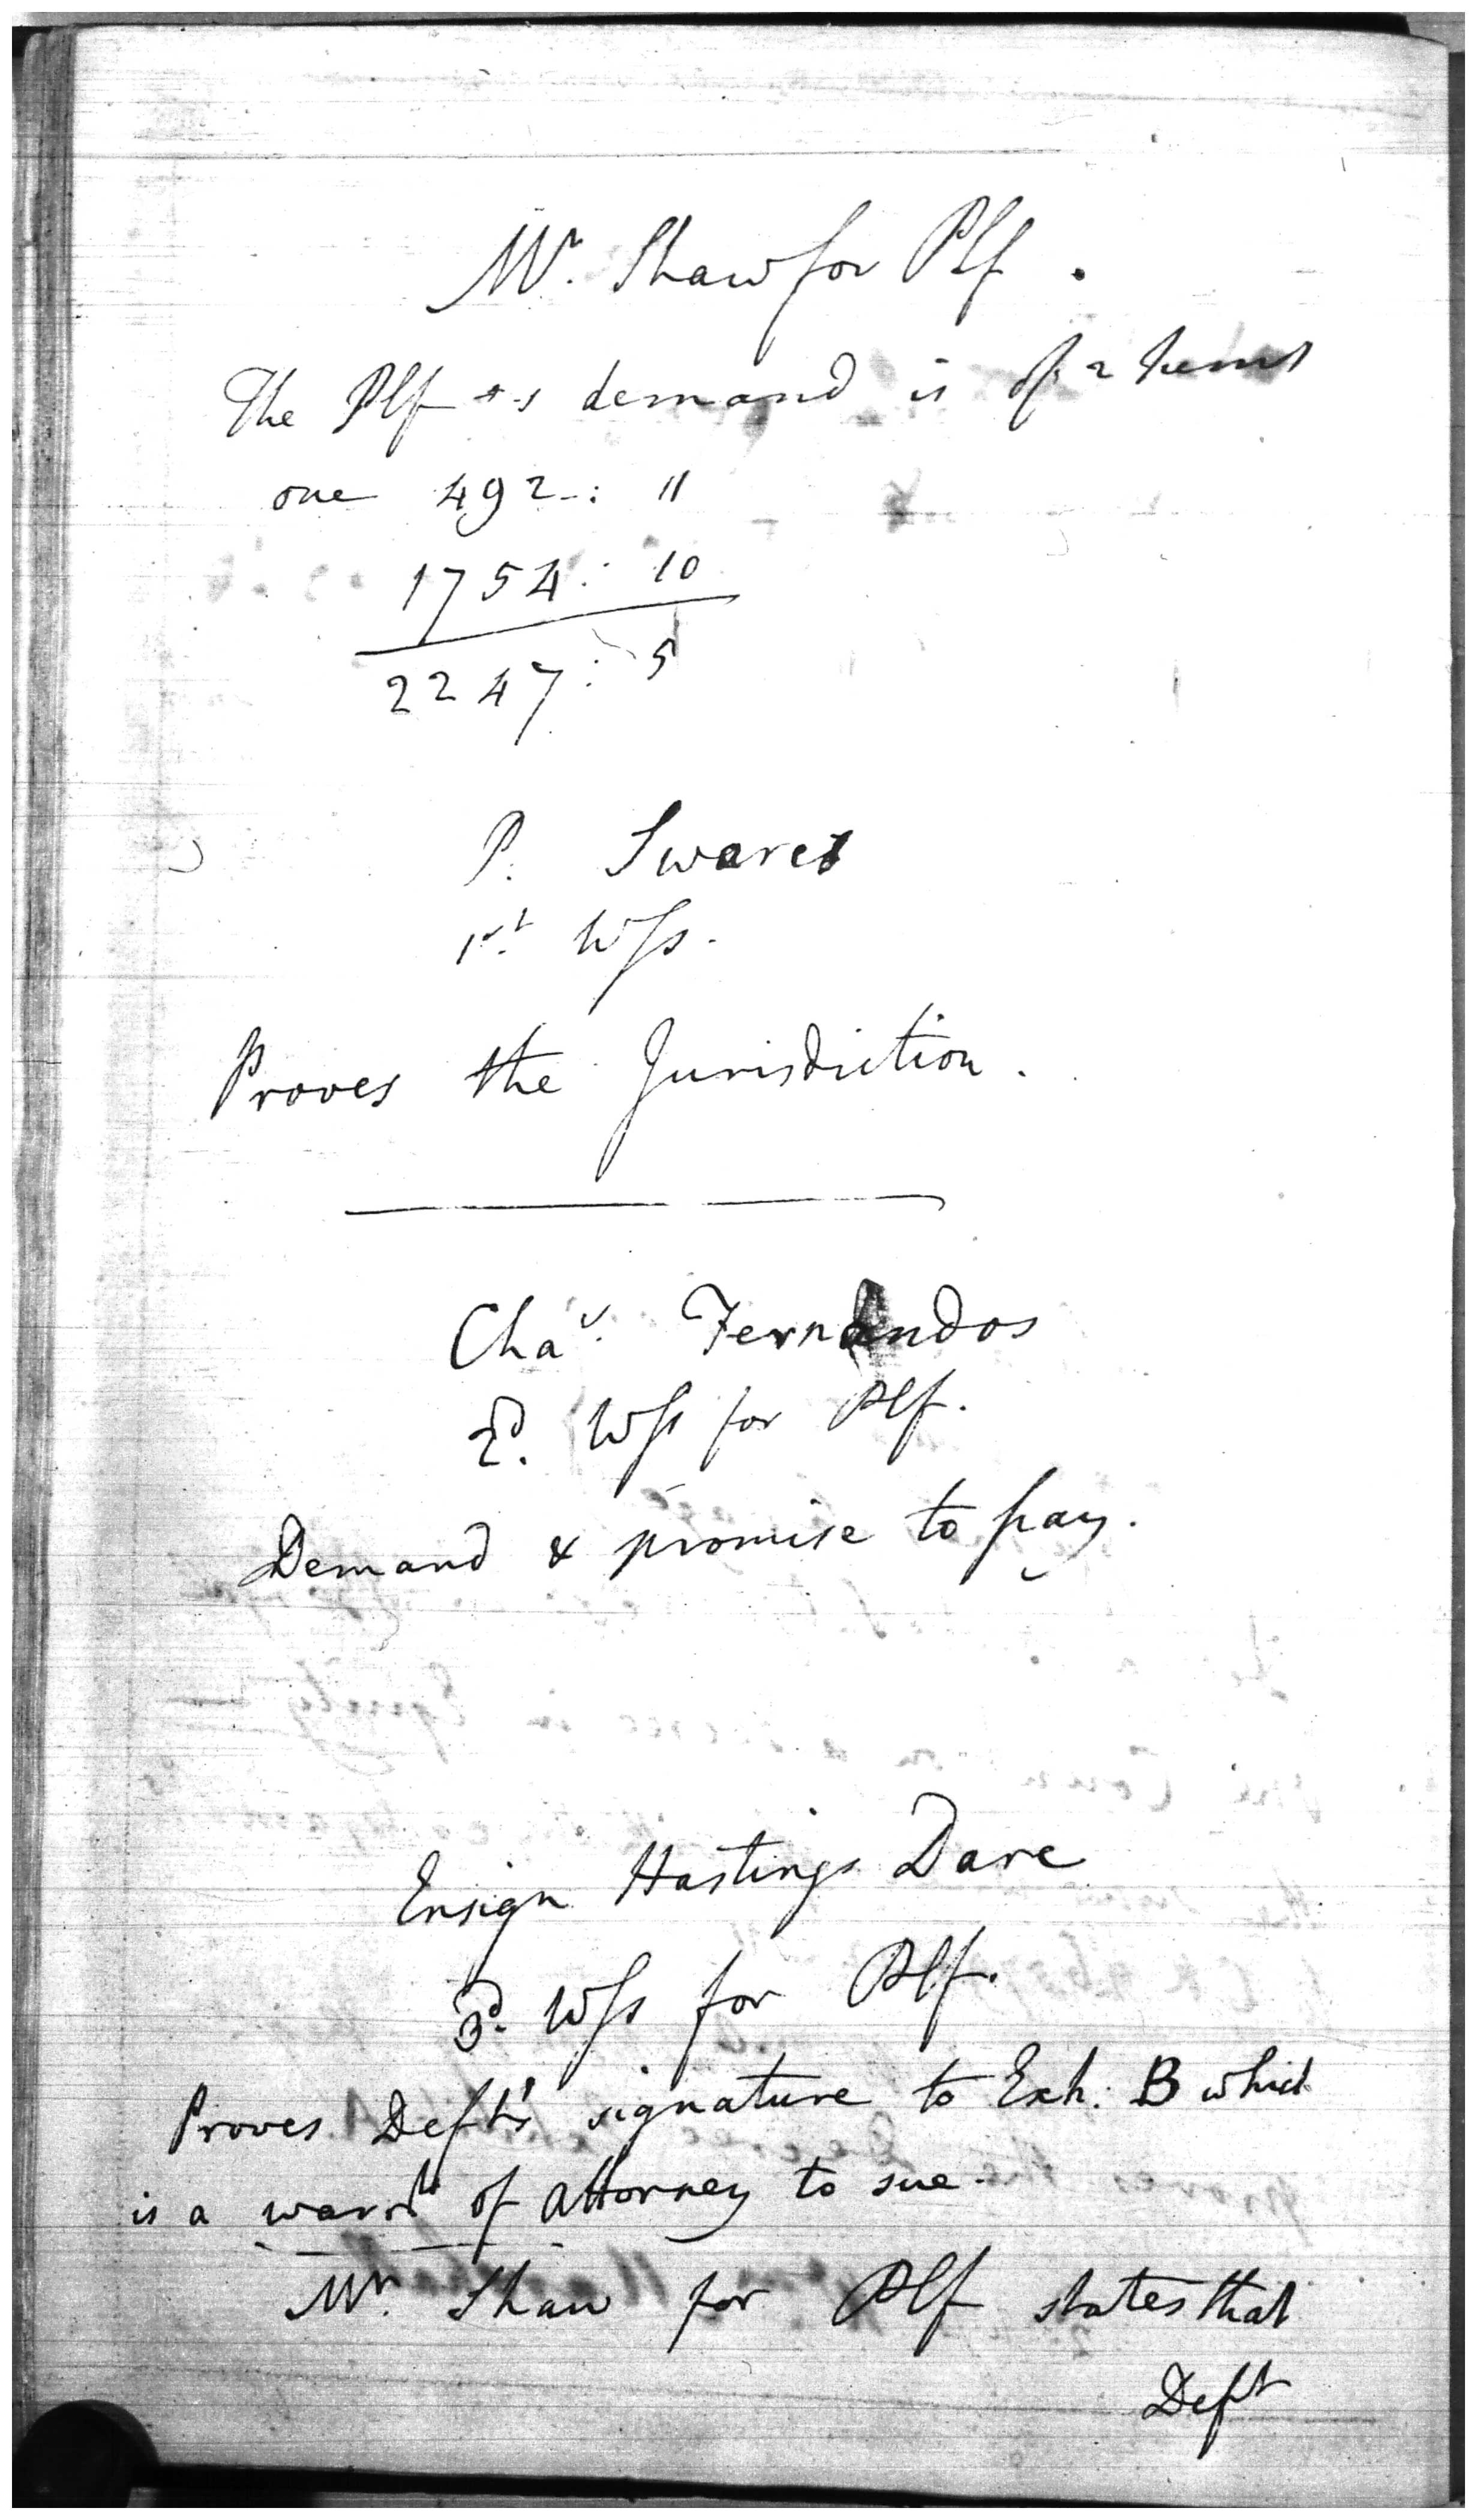 Mr. Shaw for Plf.
The Plf's demand is of 2 items
one 492 : 11
1754 : 10
2247 : 5
P. Swares
1st. Wss.
Proves the Jurisdiction.
Chas. Fernandos
2d. Wss for Plf.
Demand & promise to pay.
Ensign Hastings Dare
3d. Wss for Plf.
Proves Deft's signature to Exh: B which
is a warrt of attorney to sue.
Mr. Shaw for Plf states that
Deft